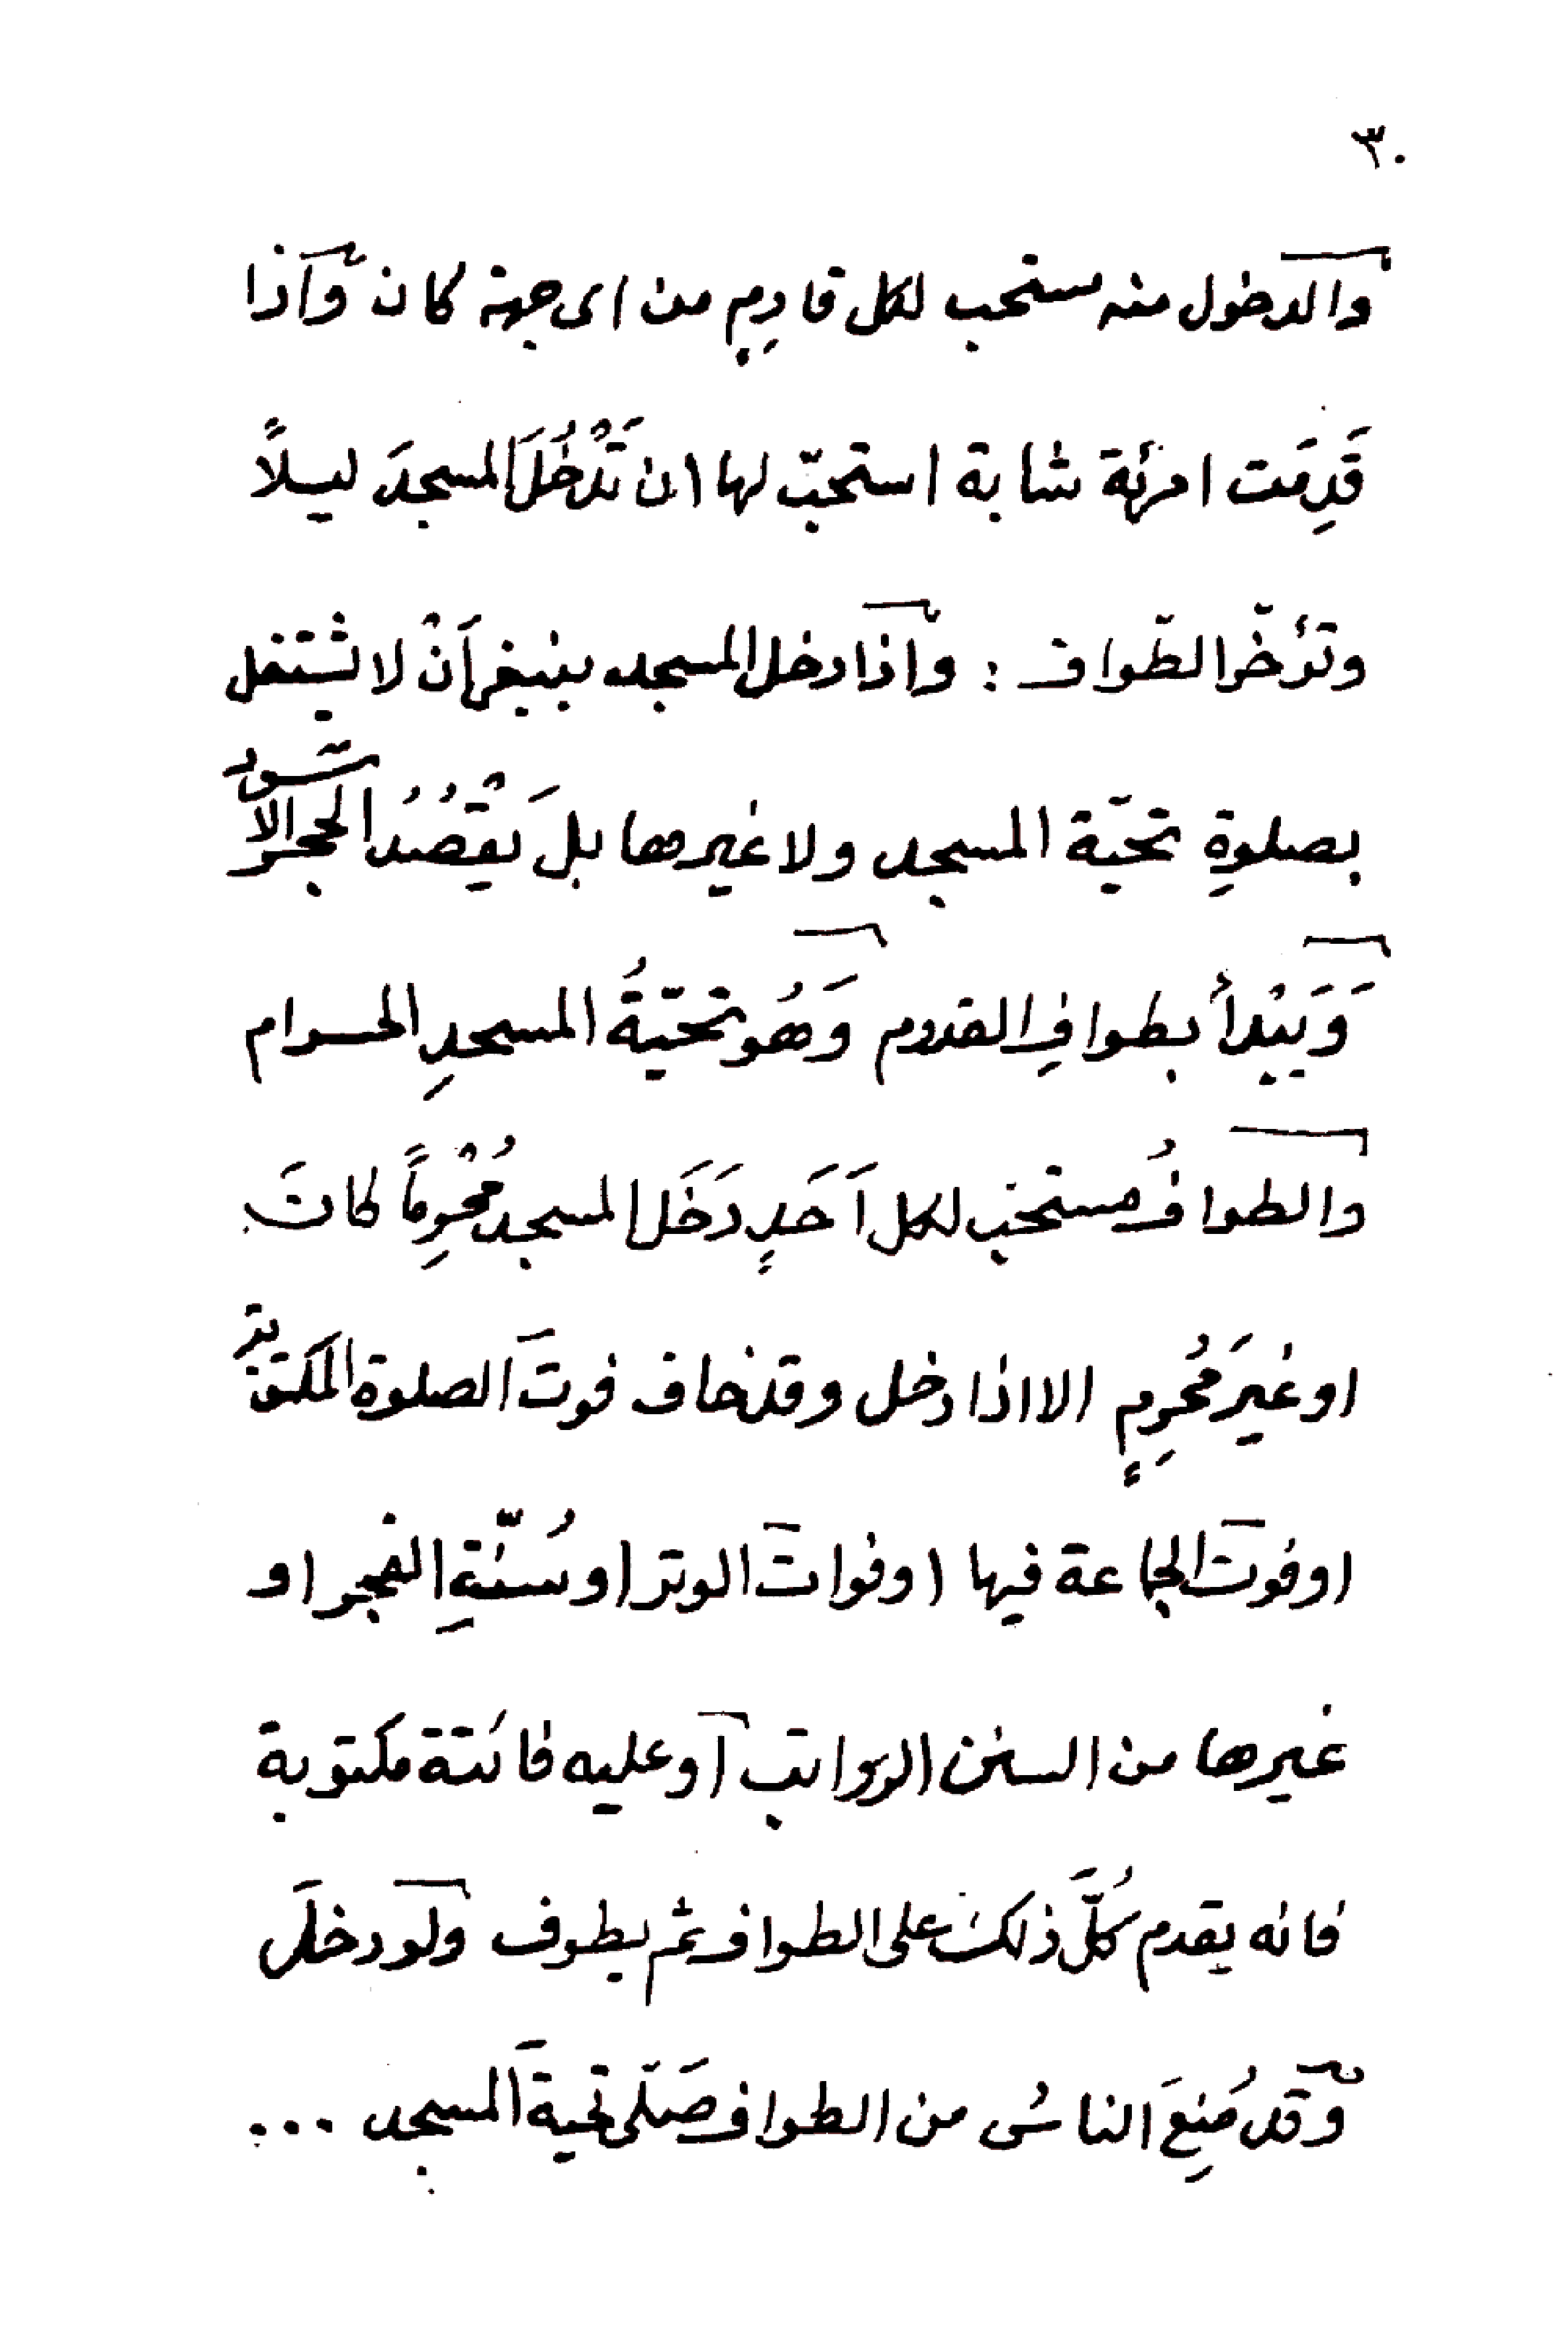 ٣٠
والدخول منه مستحب لكل قادِمٍ من اى جهة كان واذا
قَدِمَت امرئة شابة استحبّ لها ان تَدْخُلَ المسجدَ ليلاً
وتؤخّر الطّواف : واذا دخل المسجد ينبغى اَنْ لا يشتغل
بصلوةِ تحيّة المسجد ولا غيرها بل يَقْصُدُ الحجر الاسود
وَيَبْدأُ بطوافِ القدوم وَهُو تحيّةُ المسجدِ الحرام
والطوافُ مستحب لكل اَحَدٍ دَخَلَ المسجد مُحْرِماً كانَ
او غيرَ مُحرِمٍ الا اذا دخل وقد خاف فوتَ الصلوة المكتوبة
او فوتَ الجماعة فيها او فواتَ الوتر او سُنّةِ الفجر او
غيرها من السنن الرواتب او عليه فائتة مكتوبة
فانه يقدم كُلَّ ذلك على الطواف ثم يطوف ولو دخلَ
وقد مُنِعَ الناسُ من الطواف صَلّى تحيةَ المسجد ...